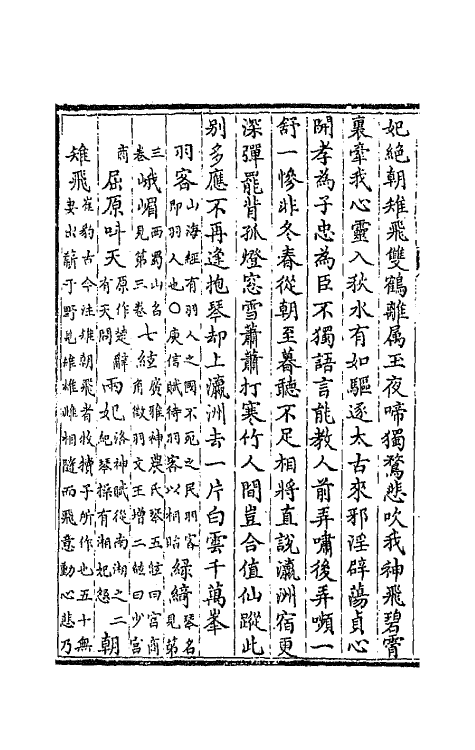 妃絕朝雉飛雙鶴離属玉夜啼獨鶩悲吹我神飛碧霄
裏牽我心靈入狄水有如驅逐太古來邪淫辟蕩貞心
開孝為子忠為臣不獨語言能教人前弄嘯後弄嚬一
舒一慘非冬春從朝至暮聽不足相將直說瀛洲宿更
深彈罷背孤燈窓雪蕭蕭打寒竹人間豈合值仙蹤此
别多應不再逢抱琴却上瀛洲去一片白雲千萬峯
羽客山海經有羽人之國不死之民羽客即羽人也○庾信賦待羽客以相貽緑綺琴名見第
三卷峨嵋西蜀山名見第三卷七絃廣雅神農氏琴五絃曰宫商角徵羽文王增二絃曰少宫
商屈原呌天原作楚辭有天問兩妃洛神賦從南湘之二妃琴操有湘妃怨朝
雉飛崔豹古今注雉朝飛者牧犢子所作也五十無妻出薪于野見雉雄雌相隨而飛意動心悲乃